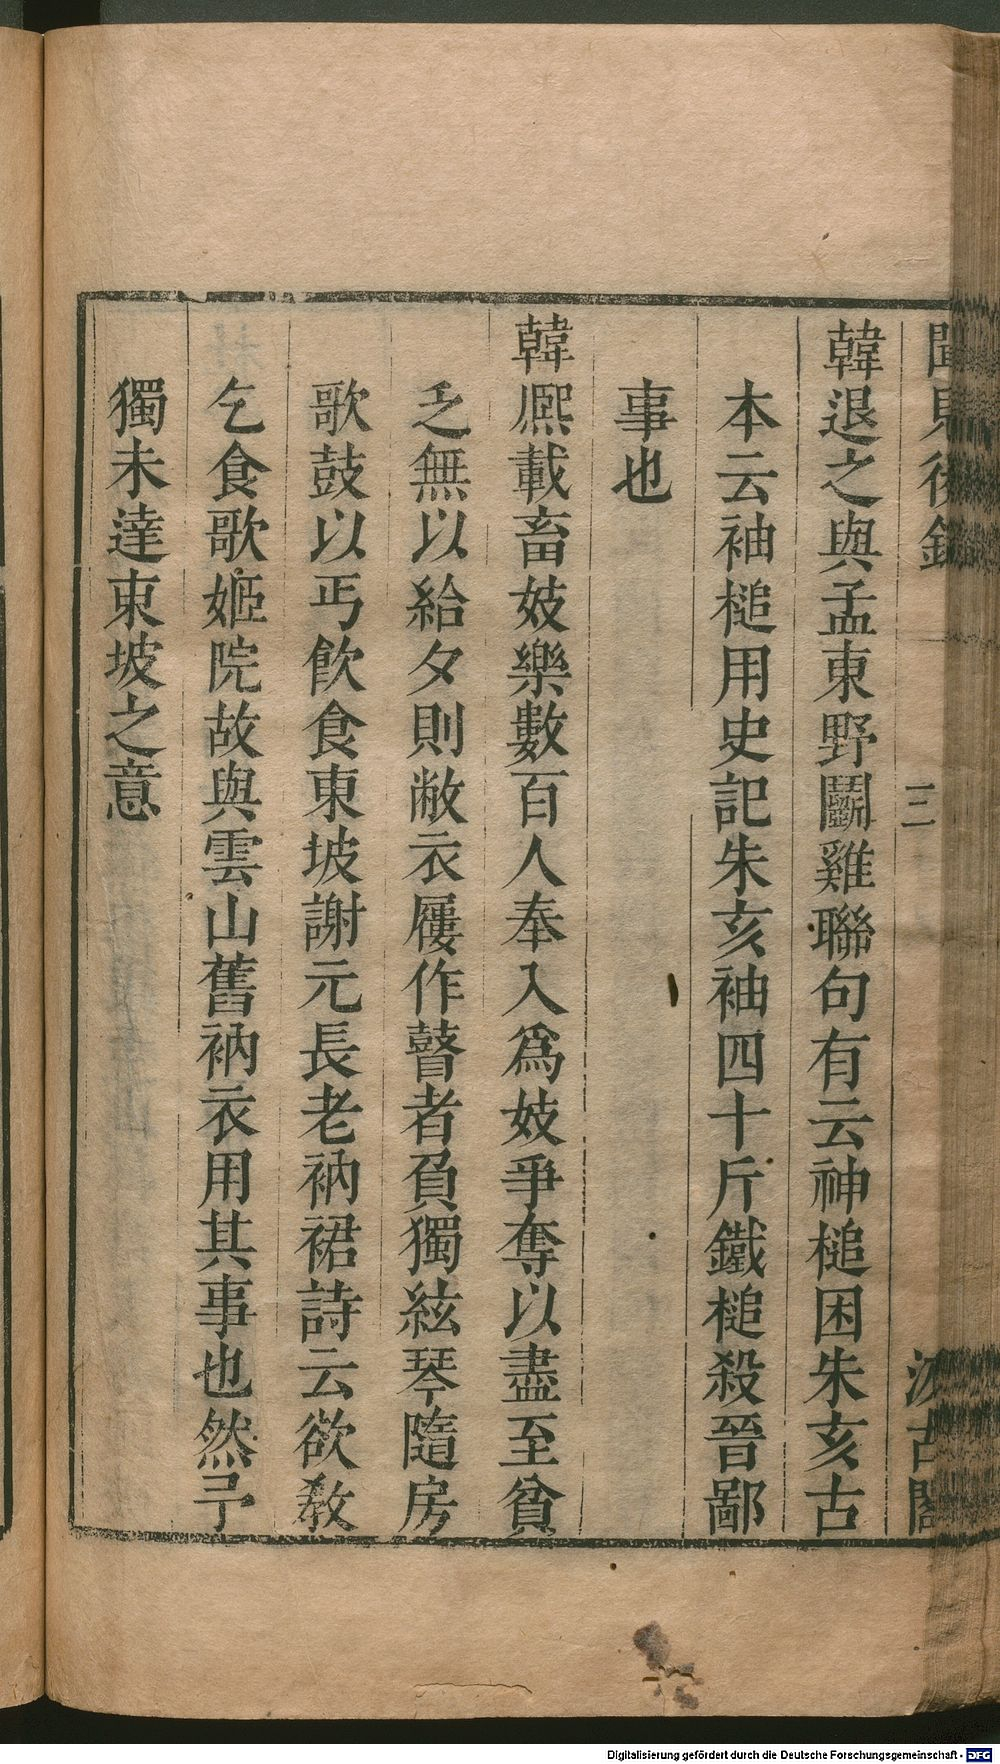 聞見後錄
三
汲古閣
韓退之與孟東野鬬雞聯句有云神槌困朱亥古
本云袖槌用史記朱亥袖四十斤鐵槌殺晉鄙
事也
韓熈載畜妓樂數百人奉入爲妓爭奪以盡至貧
乏無以給夕則敝衣屨作瞽者負獨絃琴隨房
歌鼓以丐飲食東坡謝元長老衲裙詩云欲敎
乞食歌姬院故與雲山舊衲衣用其事也然予
獨未達東坡之意
Digitalisierung gefördert durch die Deutsche Forschungsgemeinschaft - DFG